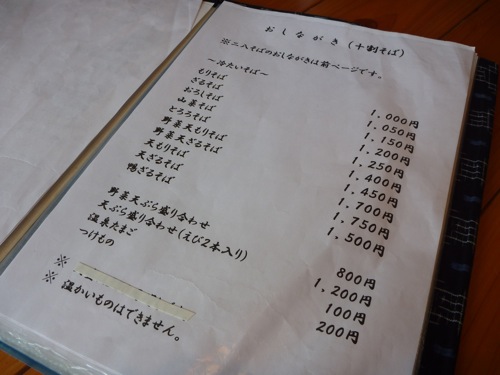 おしながき(十割そば)
※二八そばのおしながきは前ページです。
～冷たいそば～
もりそば 1,000円
ざるそば 1,050円
おろしそば 1,150円
山菜そば 1,200円
とろろそば 1,250円
野菜天もりそば 1,400円
野菜天ざるそば 1,450円
天もりそば 1,700円
天ざるそば 1,750円
鴨ざるそば 1,500円
野菜天ぷら盛り合わせ 800円
天ぷら盛り合わせ(えび2本入り) 1,200円
温泉たまご 100円
つけもの 200円
※
※ 温かいものはできません。